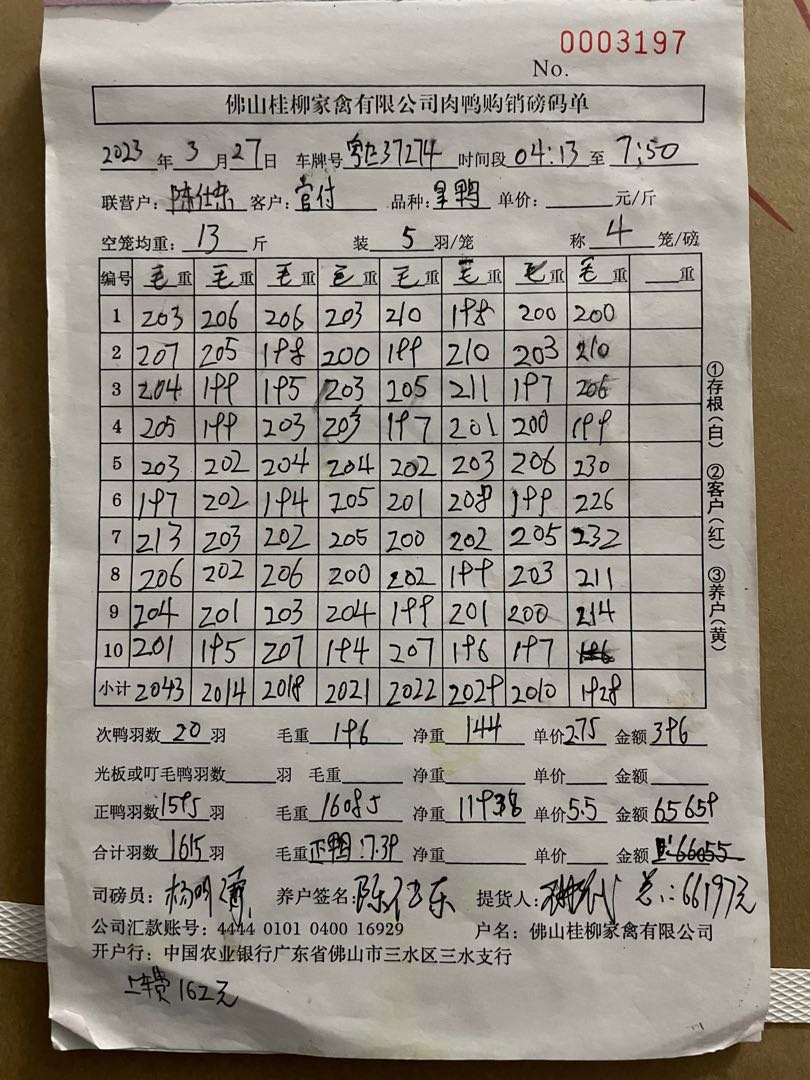 0003197
No.
佛山桂柳家禽有限公司肉鸭购销磅码单
2023 年 3 月 27 日 车牌号 37274 时间段 04:13 至 7:50
联营户: 陈仕东 客户: 官付 品种: 鸭 单价: 元/斤
空笼均重: 13 斤 装 5 羽/笼 称 4 笼/磅
编号 毛重 毛重 毛重 毛重 毛重 毛重 毛重 毛重 重
1 203 206 206 203 210 198 200 200
2 207 205 198 200 199 210 203 210
3 204 199 195 203 205 211 197 206
4 205 199 203 203 197 201 200 199
5 203 202 204 204 202 203 206 230
6 197 202 194 205 201 208 199 226
7 213 203 202 205 200 202 205 232
8 206 202 206 200 202 199 203 211
9 204 201 203 204 199 201 200 214
10 201 195 207 194 207 196 197
小计 2043 2014 2018 2021 2022 2029 2010 1928
次鸭羽数 20 羽 毛重 196 净重 144 单价 2.75 金额 396
光板或叮毛鸭羽数 羽 毛重 净重 单价 金额
正鸭羽数 1595 羽 毛重 16085 净重 11938 单价 5.5 金额 65659
合计羽数 1615 羽 毛重 正鸭:7.39 净重 单价 金额 66055
司磅员: 养户签名: 陈仕东 提货人: 总:66197元
公司汇款账号: 4444 0101 0400 16929 户名: 佛山桂柳家禽有限公司
开户行: 中国农业银行广东省佛山市三水区三水支行
上车费162元
①存根(白) ②客户(红) ③养户(黄)